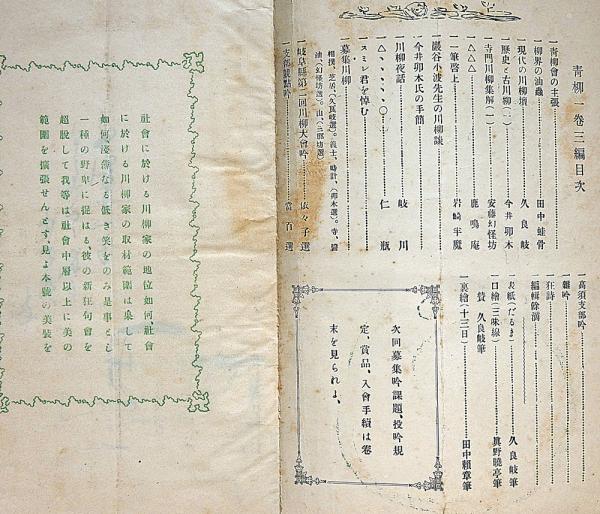 青柳一巻三編目次
一青柳會の主張
一柳界の油蟲 田中蛙骨
一現代の川柳壇 久良岐
一歴史と古川柳(二) 今井卯木
一寺門川柳集解(一) 安藤幻怪坊
一△△△ 鹿鳴庵
一一筆啓上 岩崎半魔
一巖谷小波先生の川柳談
一今井卯木氏の手簡
一川柳夜話 岐川
一△、、、、、○ 仁瓶
一スミレ君を悼む
一募集川柳
相撲、芝居、(久良岐選)。義士、時計、(卯木選)。寺、醫
油、(幻怪坊選)。山、(三郎坊選)
一岐阜縣第二回川柳大會吟 依々子選
一支部競點吟 當百選
一高須支部吟
一雜吟
一狂詩
一編輯餘滴
一表紙(だるま) 久良岐筆
一口繪(三味線) 眞野曉亭筆
賛 久良岐筆
一裏繪(十三日) 田中賴章筆
次回募集吟課題、投吟規
定、賞品、入會手續は卷
末を見られよ、
社會に於ける川柳家の地位如何社會
に於ける川柳家の取材範圍は果して
如何、淺薄なる低き笑をのみ是事とし
一種の野卑に捉はるゝ彼の新狂句會を
超脱して我等は社會中層以上に美の
範圍を擴張せんとす、見よ本號の美裝を